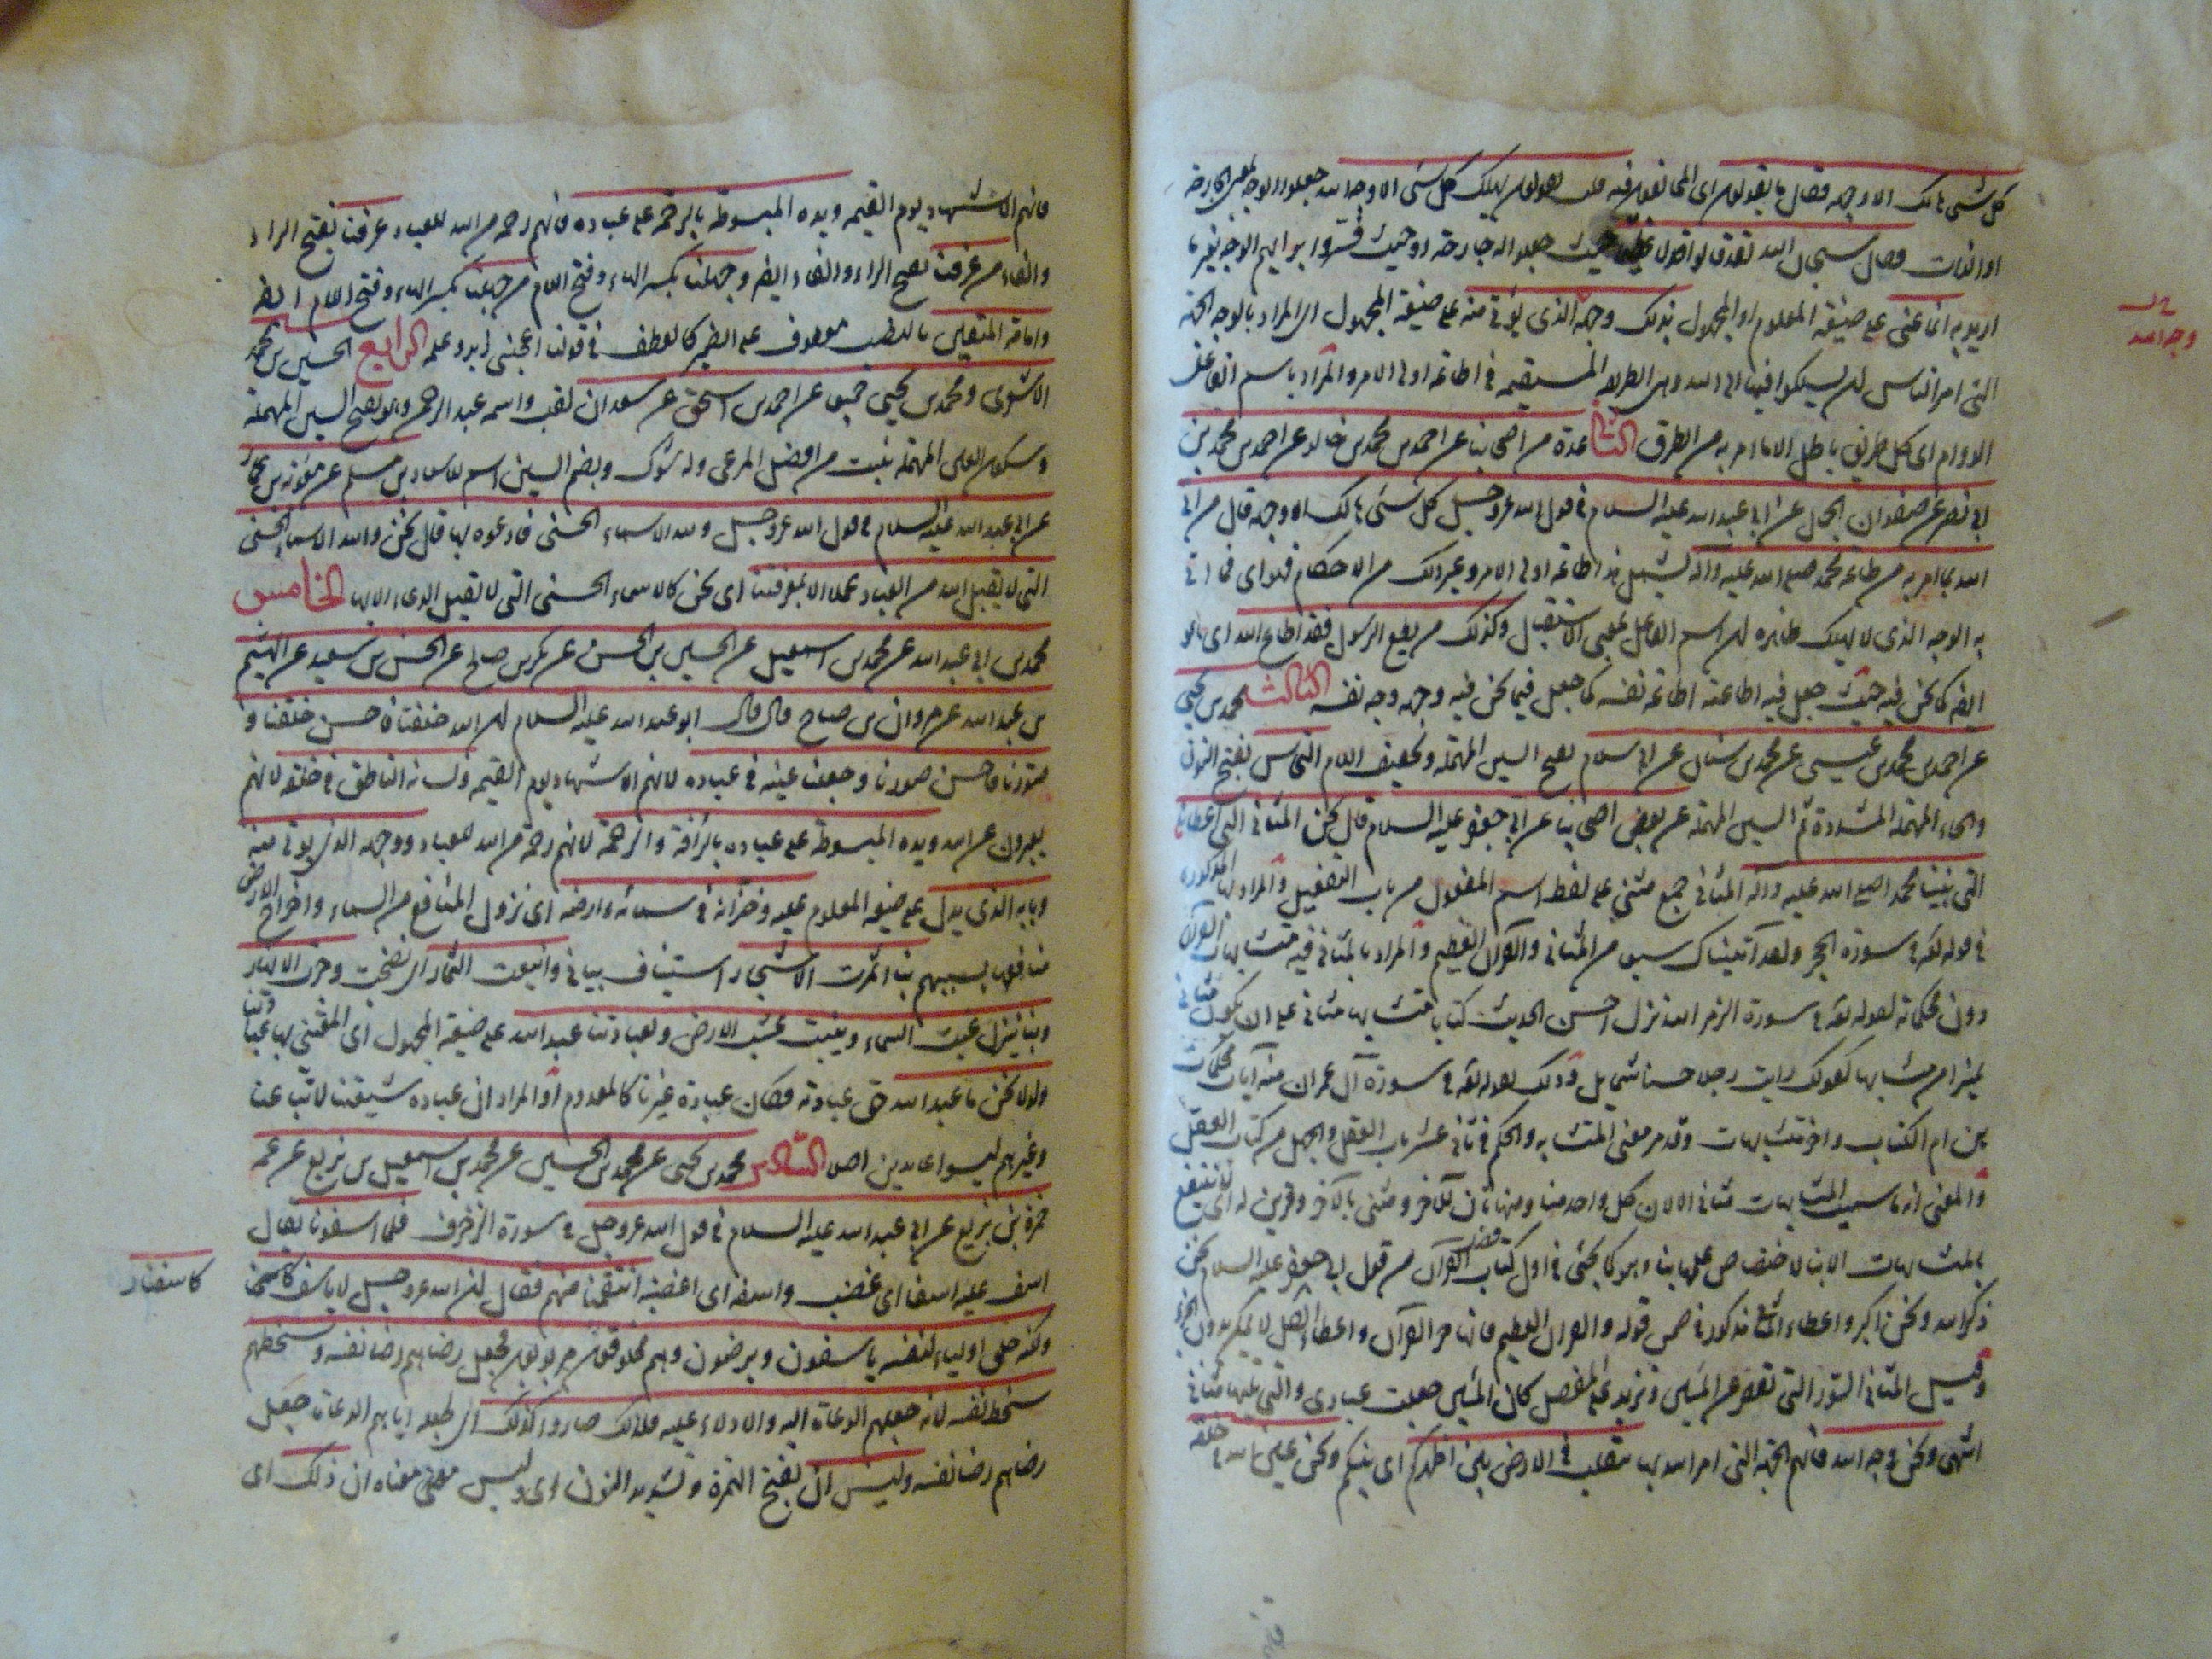 كل شئ هالك الا وجهه فقال ما يقولون اى المخالفون فيه قلت يقولون يهلك كل شئ الا وجه الله جعلوا الوجه بمعنى الجارحة
او الذات فقال سبحان الله لقد قالوا قولا عظيما حيث جعلوا له جارحة او حيث فسروا برايهم الوجه بغير ما
اريد به انما عنى على صيغة المعلوم او المجهول بذلك وجه الله الذى يؤتى منه على صيغة المجهول اى المراد بالوجه الجهة
التى امر الناس ان يسلكوا فيها الى الله وهى الطريقة المستقيمة فى اطاعة اولى الامر والمراد باسم الفاعل
الدوام اى كل طريق باطل الا ما امر به من الطرق الثانى عدة من اصحابنا عن احمد بن محمد بن خالد عن احمد بن محمد بن
ابى نصر عن صفوان الجمال عن ابى عبد الله عليه السلام فى قول الله عز وجل كل شئ هالك الا وجهه قال من اتى
الله بما امر به من طاعة محمد صلى الله عليه وآله يشمل هذا طاعة اولى الامر وغير ذلك من الاحكام فهو اى فما اتى
به الوجه الذى لا يهلك ظاهره ان اسم الفاعل بمعنى الاستقبال وكذلك من يطع الرسول فقد اطاع الله اى هو
ايضا كما نحن فيه حيث جعل فيه اطاعته اطاعة نفسه كما جعل فيما نحن فيه وجهه وجه نفسه الثالث محمد بن يحيى
عن احمد بن محمد بن عيسى عن محمد بن سنان عن ابى سلام بفتح السين المهملة وتخفيف اللام النحاس بفتح النون
والحاء المهملة المشددة ثم السين المهملة عن بعض اصحابنا عن ابى جعفر عليه السلام قال نحن المثانى التى اعطاها
التى نبينا محمدا صلى الله عليه وآله المثانى جمع مثنى على لفظ اسم المفعول من باب التفعيل والمراد بها المذكورة
فى قوله تعالى فى سورة الحجر ولقد آتيناك سبعا من المثانى والقرآن العظيم والمراد بالمثانى فيه متشابهات القرآن
دون محكماته لقوله تعالى فى سورة الزمر الله نزل احسن الحديث كتابا متشابها مثانى على ان يكون مثانى
تميزا من متشابها كقولك رايت رجلا حسنا شمايل وذلك لقوله تعالى فى سورة آل عمران منه آيات محكمات
هن ام الكتاب واخر متشابهات وقد مر معنى المتشابه والمحكم فى ثانى عشر باب العقل والجهل من كتاب العقل
والمعنى انه ما سميت المتشابهات مثانى الا لان كل واحد منا ومنها ثان للآخر ومثنى بالآخر وقرين له اى لا ننتفع
بالمتشابهات الا بنا لاختصاص علمها بنا وهو كما يجئ فى اول كتاب فضل القرآن من قول ابى جعفر عليه السلام نحن
ذكر الله ونحن اكبر واعطاء المثانى مذكور فى ضمن قوله والقرآن العظيم فانها من القرآن واعطاء الكل لا يمكن بدون الجزء
وقيل المثانى السور التى تقصر عن المئين وتزيد على المفصل كان المئين جعلت مبادى والتى تليها مثانى
انتهى ونحن وجه الله فانهم الجهة التى امر الله بها نتقلب فى الارض بين اظهركم اى بينكم ونحن عين الله فى خلقه
وجه الله
فانهم الاشهاد يوم القيمة ويده المبسوطة بالرحمة على عباده فانهم رحمة من الله للعباد عرفنا بفتح الراء
والفاء من عرفنا بفتح الراء والفاء ايضا وجهلنا بكسر الهاء وفتح اللام من جهلنا بكسر الهاء وفتح اللام ايضا
وامامة المتقين بالنصب معطوف على الضمير كالعطف فى قولنا اعجبنى زيد وعلمه الرابع الحسين بن محمد
الاشعرى ومحمد بن يحيى جميعا عن احمد بن اسحق عن سعدان لقب واسمه عبد الرحمن وهو بفتح السين المهملة
وسكون العين المهملة نبت من افضل المرعى وله شوك وبضم السين اسم للاسعاد بن مسلم عن معوية بن عمار
عن ابى عبد الله عليه السلام فى قول الله عز وجل ولله الاسماء الحسنى فادعوه بها قال نحن والله الاسماء الحسنى
التى لا يقبل الله من العباد عملا الا بمعرفتنا اى نحن كالاسماء الحسنى التى لا تقبل الدعاء الا بها الخامس
محمد بن ابى عبد الله عن محمد بن اسمعيل عن الحسين بن الحسن عن بكر بن صالح عن الحسن بن سعيد عن الهيثم
بن عبد الله عن مروان بن صباح قال قال ابو عبد الله عليه السلام ان الله خلقنا فاحسن خلقنا و
صورنا فاحسن صورنا وجعلنا عينه فى عباده لانهم الاشهاد يوم القيمة ولسانه الناطق فى خلقه لانهم
يعبرون عن الله ويده المبسوطة على عباده بالرأفة والرحمة لانهم رحمة من الله للعباد ووجهه الذى يؤتى منه
وبابه الذى يدل على صيغة المعلوم عليه وخزانه فى سمائه وارضه اى نزول المنافع من السماء واخراج الارض
منافعها بسببهم بنا اثمرت الاشجار استيناف بيانى واينعت الثمار اى نضجت وجرت الانهار
وبنا ينزل غيث السماء وينبت عشب الارض وبعبادتنا عبد الله على صيغة المجهول اى المقتدى بها عبادتنا
ولولا نحن ما عبد الله حق عبادته فكان عبادة غيرنا كالمعدوم او المراد ان عباده شيعتنا لاتباعنا
وغيرهم ليسوا عابدين اصلا السادس محمد بن يحيى عن محمد بن الحسين عن محمد بن اسمعيل بن بزيع عن عمه
حمزة بن بزيع عن ابى عبد الله عليه السلام فى قول الله عز وجل فى سورة الزخرف فلما اسفونا يقال
اسف عليه اسفا اى غضب واسفه اى اغضبه انتقمنا منهم فقال ان الله عز وجل لا ياسف كاسفنا
كاسفنا
ولكنه خلق اولياء لنفسه ياسفون ويرضون وهم مخلوقون مربوبون فجعل رضاهم رضا نفسه وسخطهم
سخط نفسه لانه جعلهم الدعاة اليه والادلاء عليه فلذلك صاروا كذلك اى جعله اياهم الدعاة جعل
رضاهم رضا نفسه وليس ان بفتح الهمزة وتشديد النون اى وليس معنى معناه ان ذلك اى